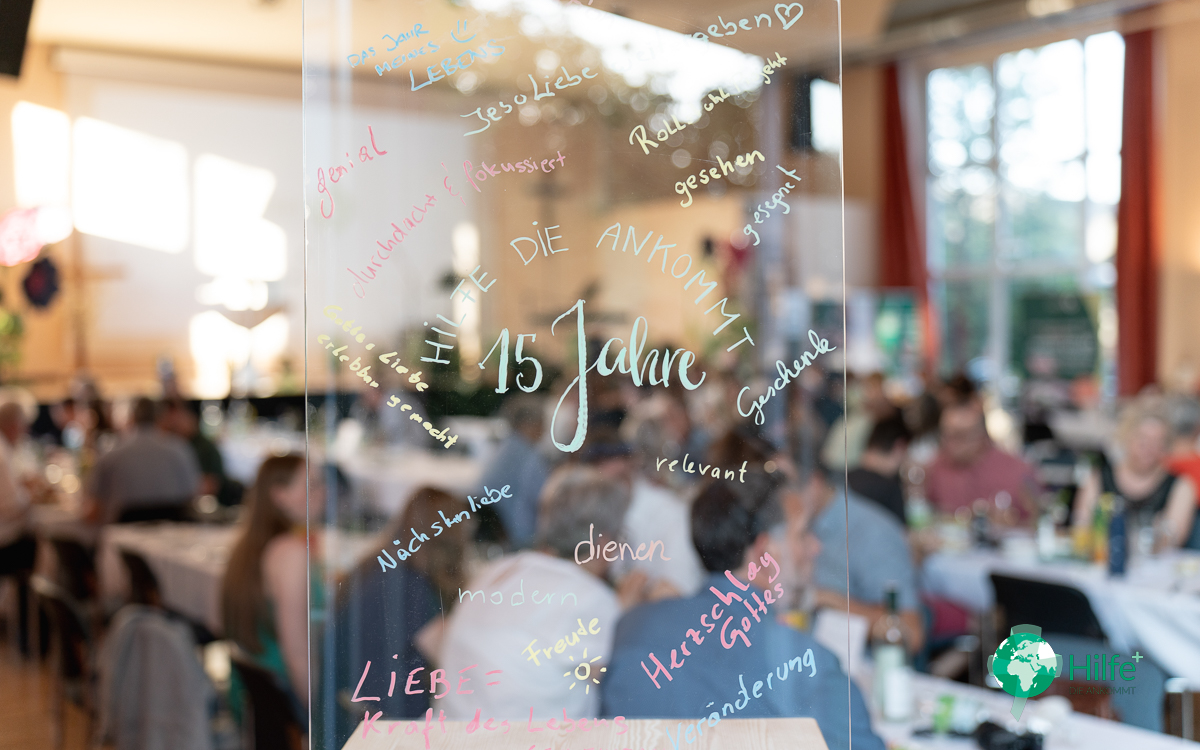 DAS JAHR
MEINES
LEBENS
geben
Jesu Liebe
Rollt
geht
genial
durchdacht & fokussiert
gesehen
gesegnet
HILFE DIE ANKOMMT
15 Jahre
Gottes Liebe
erlebbar gemacht
Geschenk
relevant
Nächstenliebe
dienen
modern
Herzschlag
Gottes
Freude
LIEBE =
Kraft des Lebens
Veränderung
Hilfe+
DIE ANKOMMT